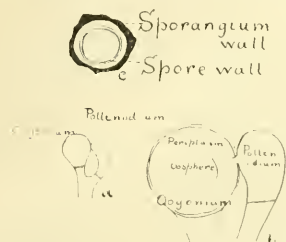 Sporangium
wall
c Spore wall
Pollinod um
um
a
Periplasm
oosphere
Pollen
dium
Oogonium
b